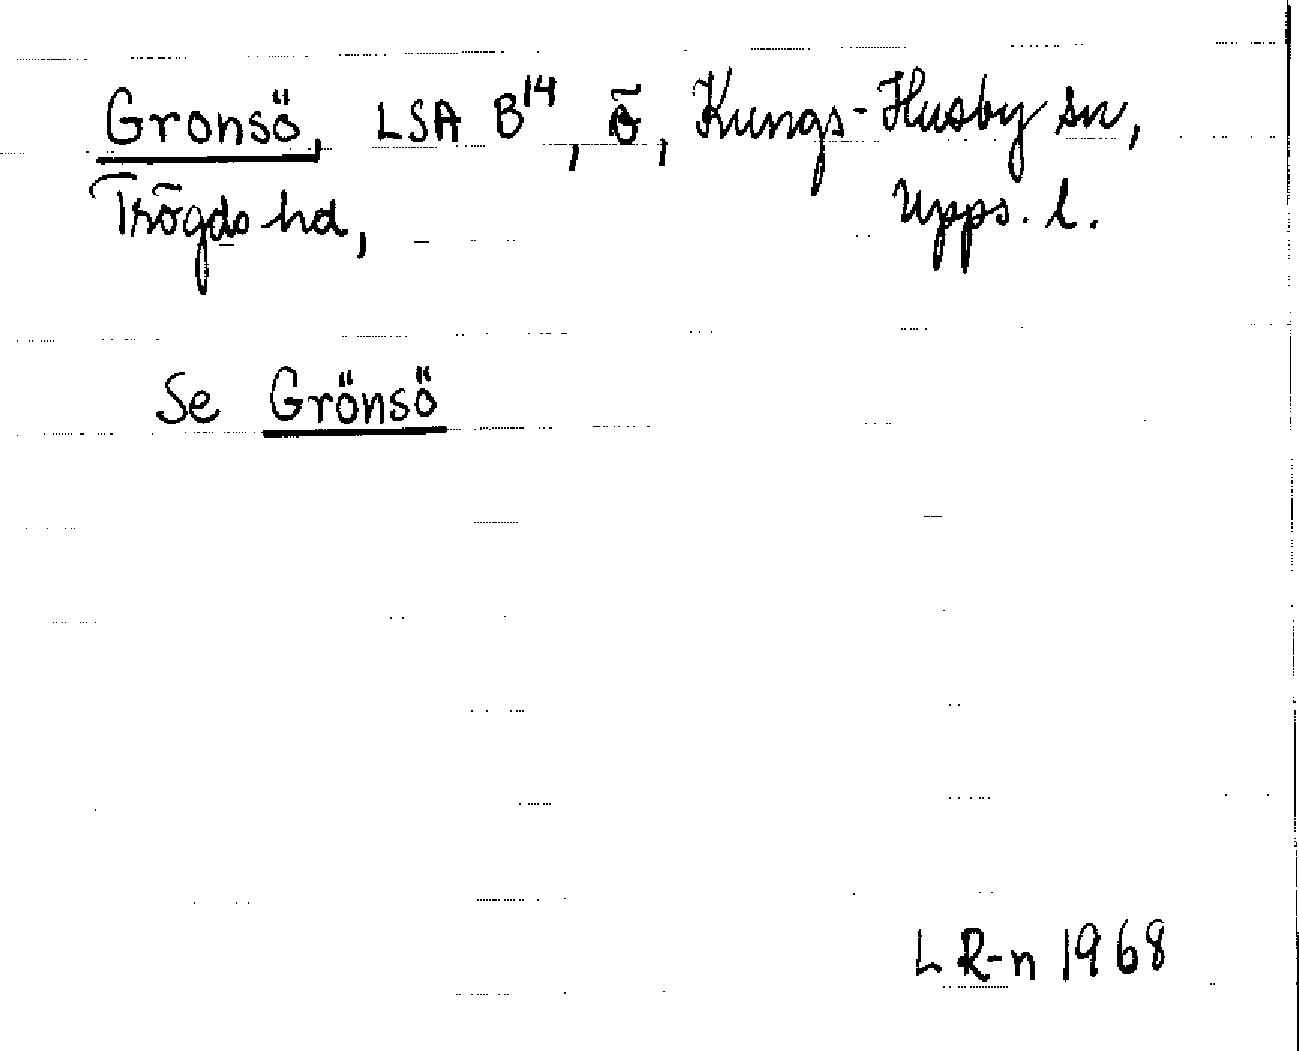 Gronsö, LSA B14, ö, Kungs-Husby sn,
Trögds hd, Upps. l.
Se Grönsö
L R-n 1968